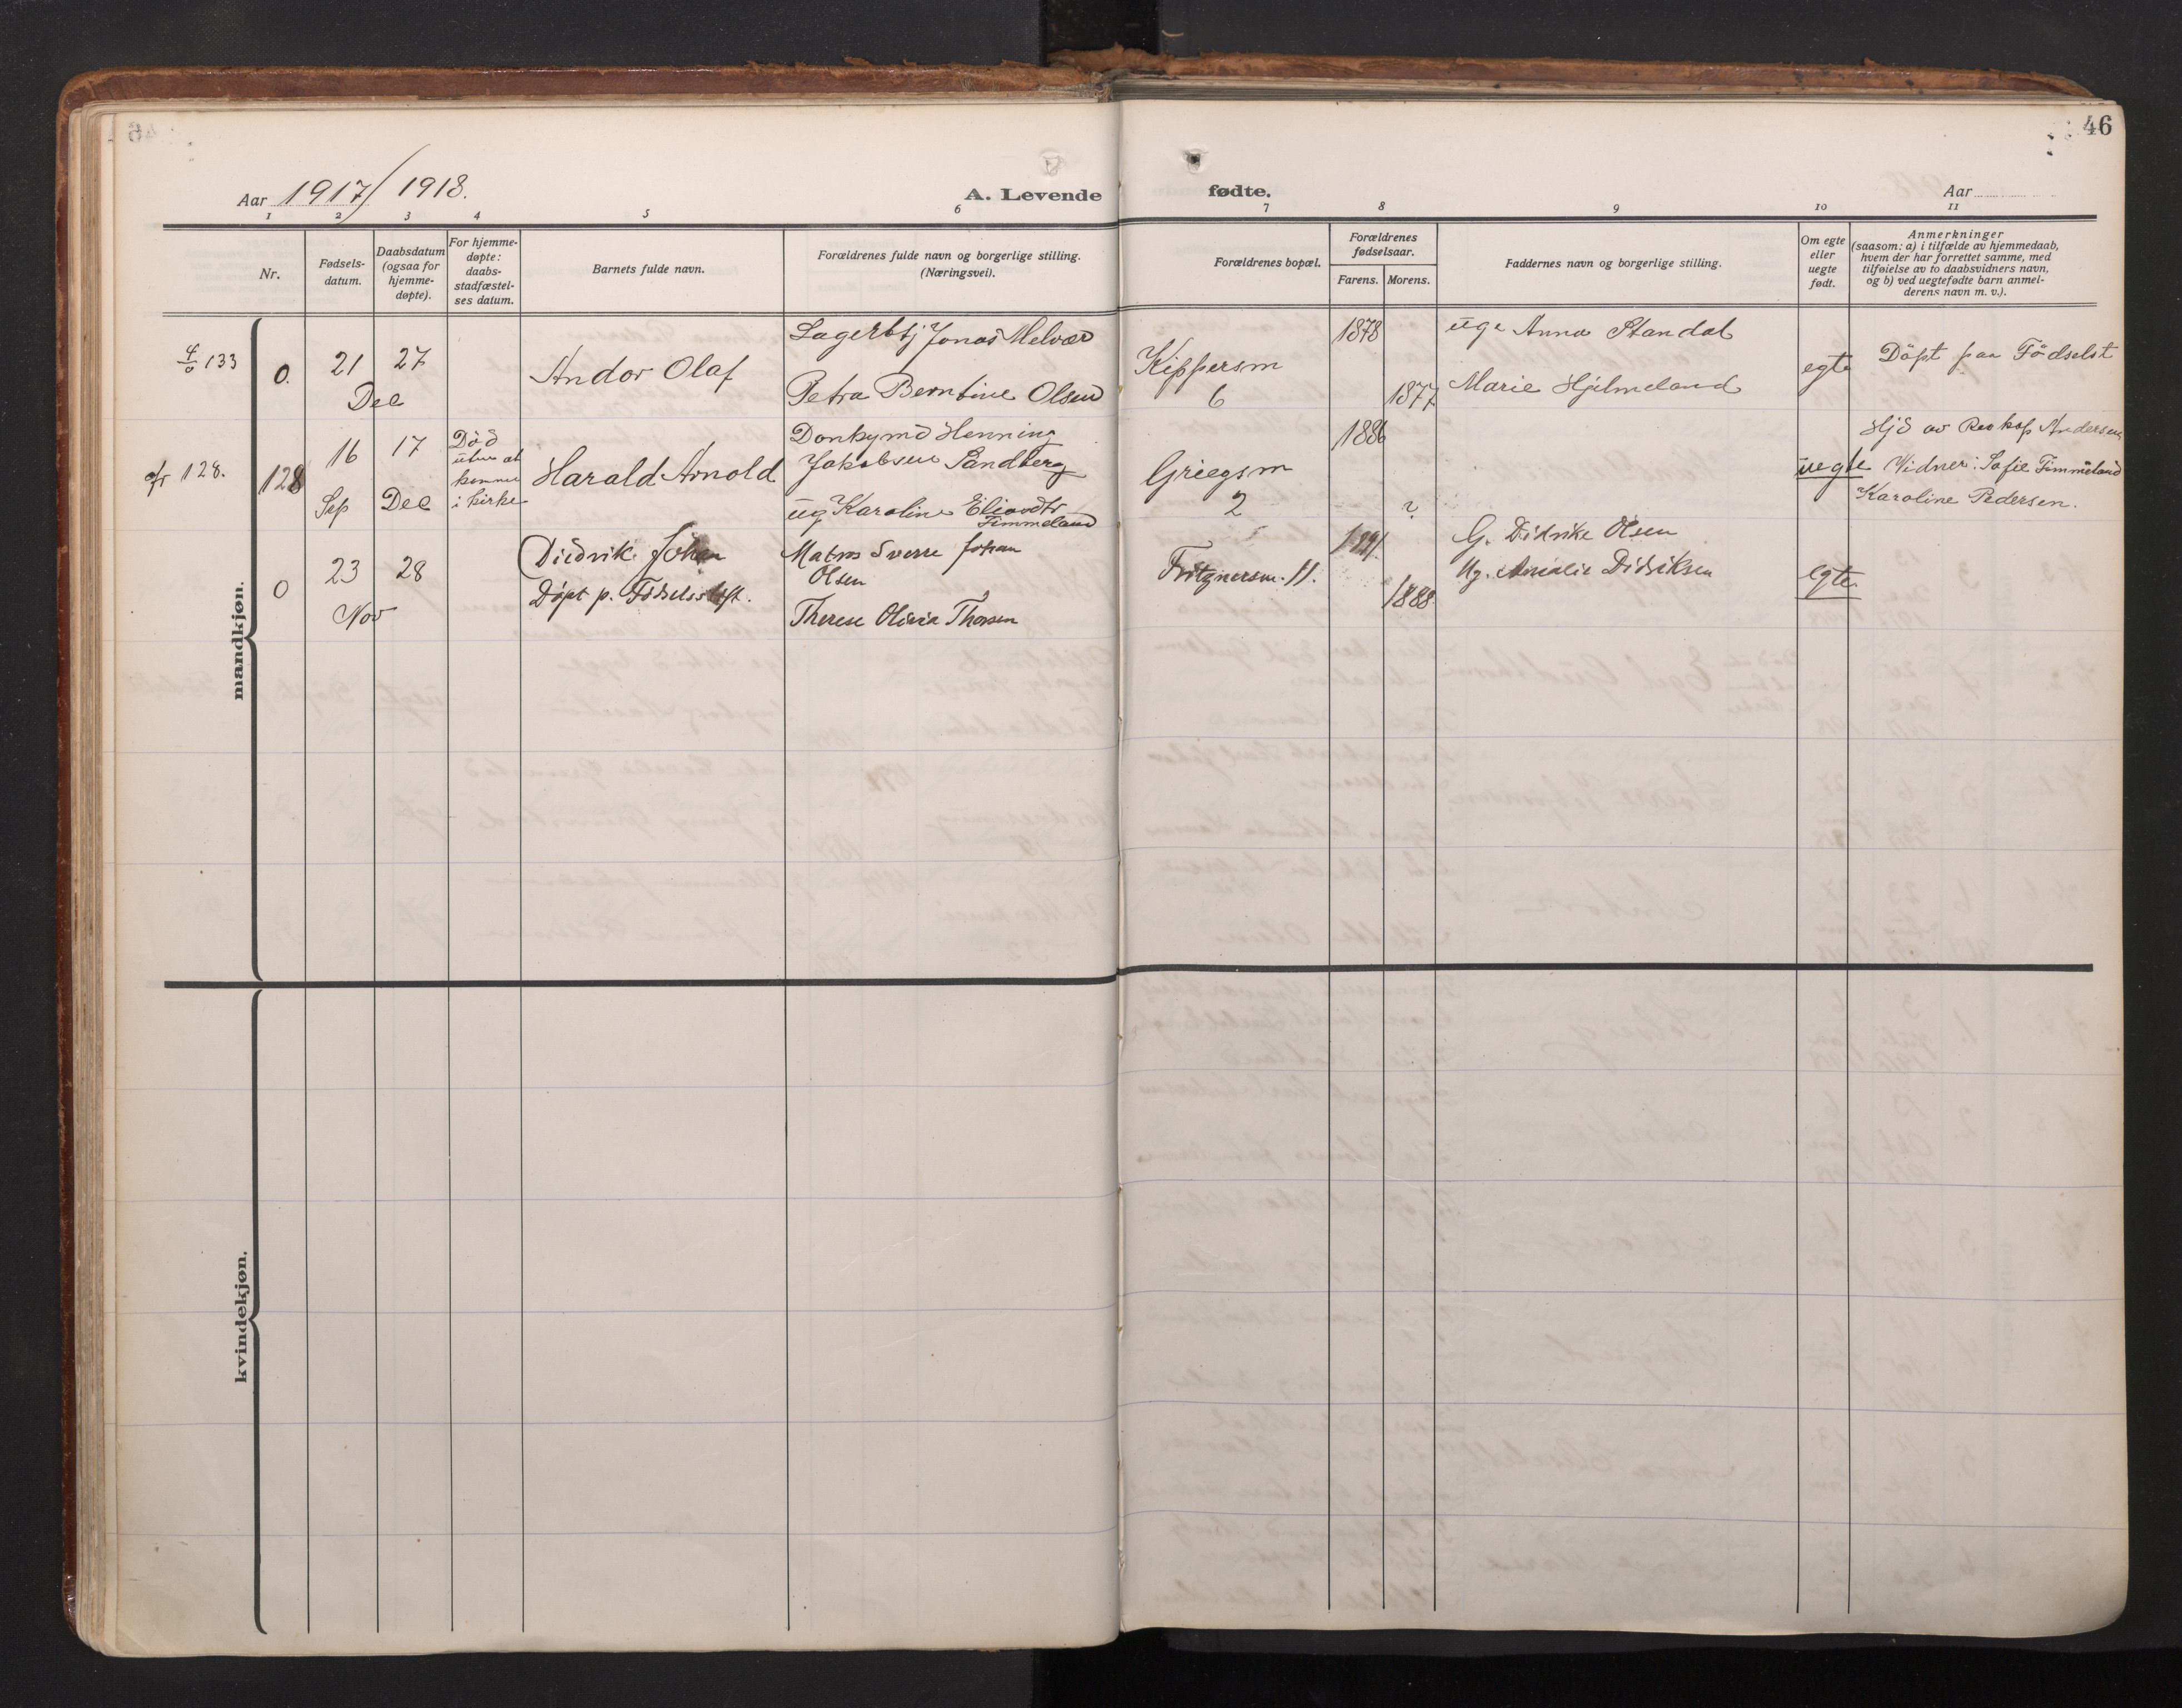 46
Aar 1917/1918.
A. Levende fødte.
Aar
1 2 3 4 5 6 7 8 9 10 11
Nr.
Fødsels-
datum.
Daabsdatum
(ogsaa for
hjemme-
døpte).
For hjemme-
døpte:
daabs-
stadfæstel-
ses datum.
Barnets fulde navn.
Forældrenes fulde navn og borgerlige stilling.
(Næringsvei).
Forældrenes bopæl.
Forældrenes
fødselsaar.
Farens. Morens.
Faddernes navn og borgerlige stilling.
Om egte
eller
uegte
født.
Anmerkninger
(saasom: a) i tilfælde av hjemmedaab,
hvem der har forrettet samme, med
tilføielse av to daabsvidners navn,
og b) ved uegtefødte barn anmel-
derens navn m. v.).
mandkjøn.
133
0.
21 27
Dec
Andor Olaf
Lagerbtj Jonas Melvær
Petra Berntine Olsen
Kippersm
6
1878
1877
uge Anna Standal
Marie Hjelmeland
egte
Døpt paa Fødselst
128.
128
16 17
Sep Dec
Død
uten at
komme
i kirke
Harald Arnold
Donkymd Henning
Jakobsen Sandberg
ug Karoline Eliasdtr
Timmeland
Griegsm
2
1886
?
uegte
Hjd av Reskap Andersen
Vidner: Sofie Timmeland
Karoline Pedersen.
0
23 28
Nov
Diedrik Johan
Døpt p. Fødselsstift.
Matros Sverre Johan
Olsen
Therese Olivia Thorsen
Fritznersm. 11.
1891.
1888
G. Didrike Olsen
Ug. Amalie Didriksen
egte
kvindekjøn.